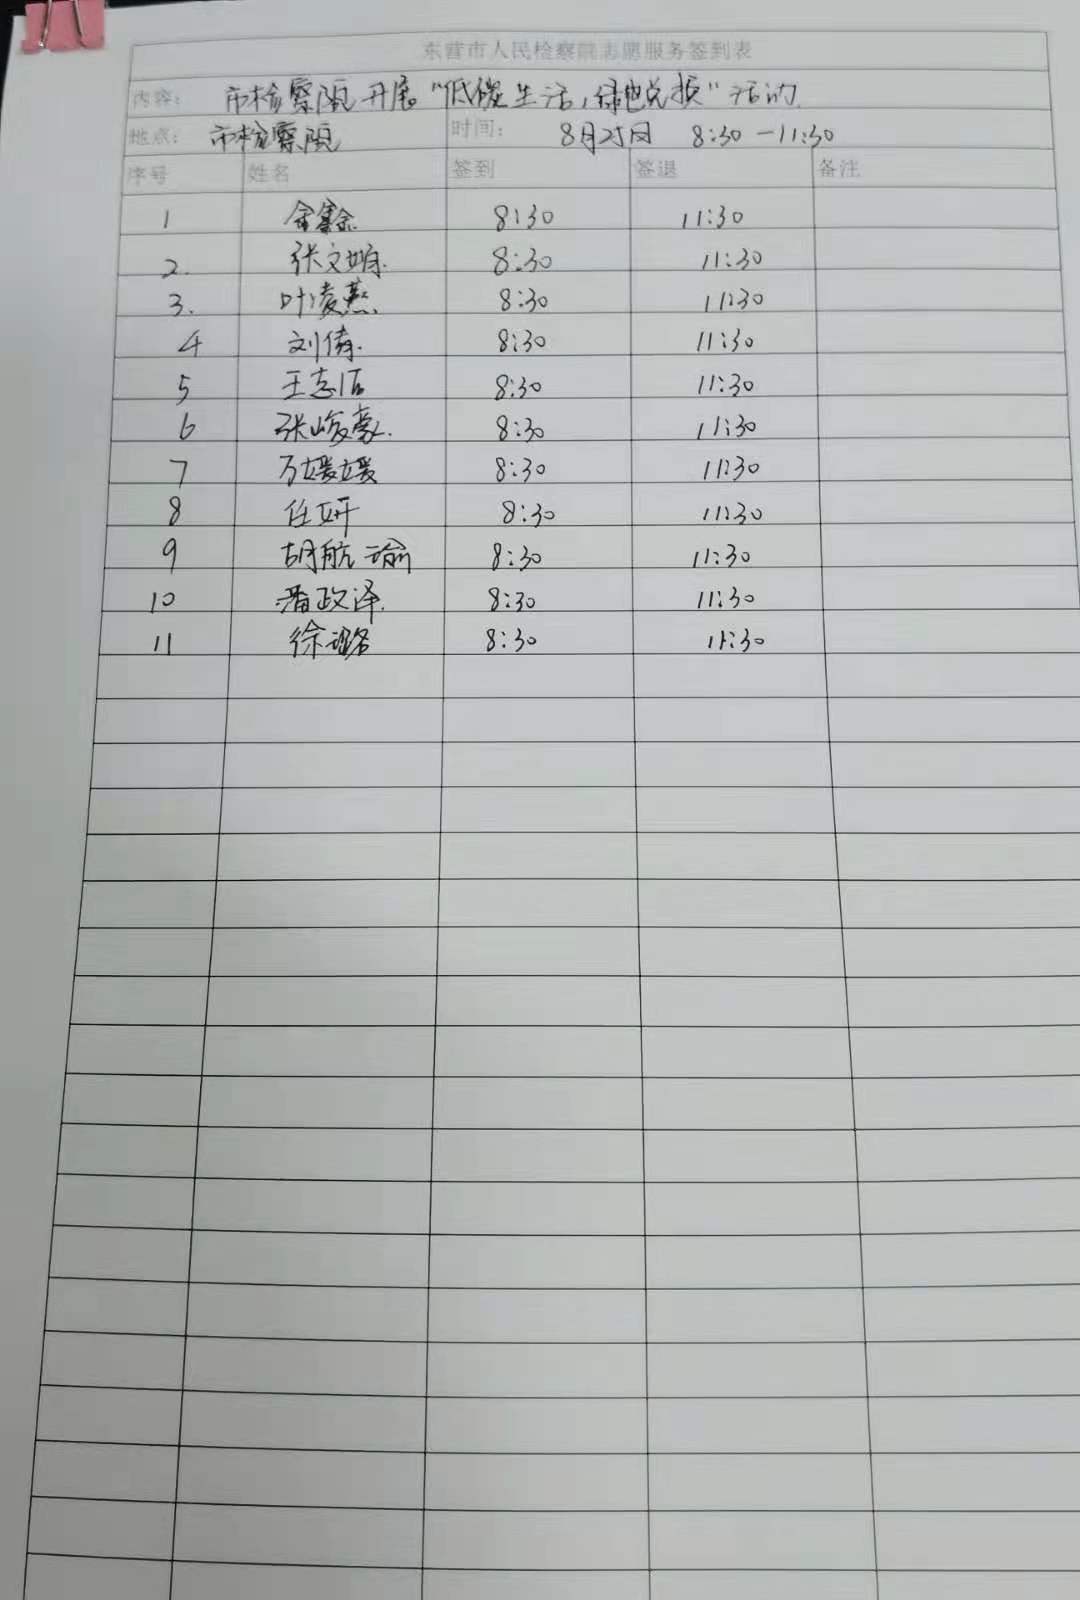 东营市人民检察院志愿服务签到表
内容： 市检察院开展“低碳生活，绿色兑换”活动
地点： 市检察院 时间： 8月25日 8:30-11:30
序号 姓名 签到 签退 备注
1 8:30 11:30
2. 张文娟 8:30 11:30
3. 叶凌燕 8:30 11:30
4 刘倩 8:30 11:30
5 王志洁 8:30 11:30
6 张峻豪 8:30 11:30
7 万媛媛 8:30 11:30
8 任妍 8:30 11:30
9 胡航瑜 8:30 11:30
10 政泽 8:30 11:30
11 徐璐 8:30 11:30